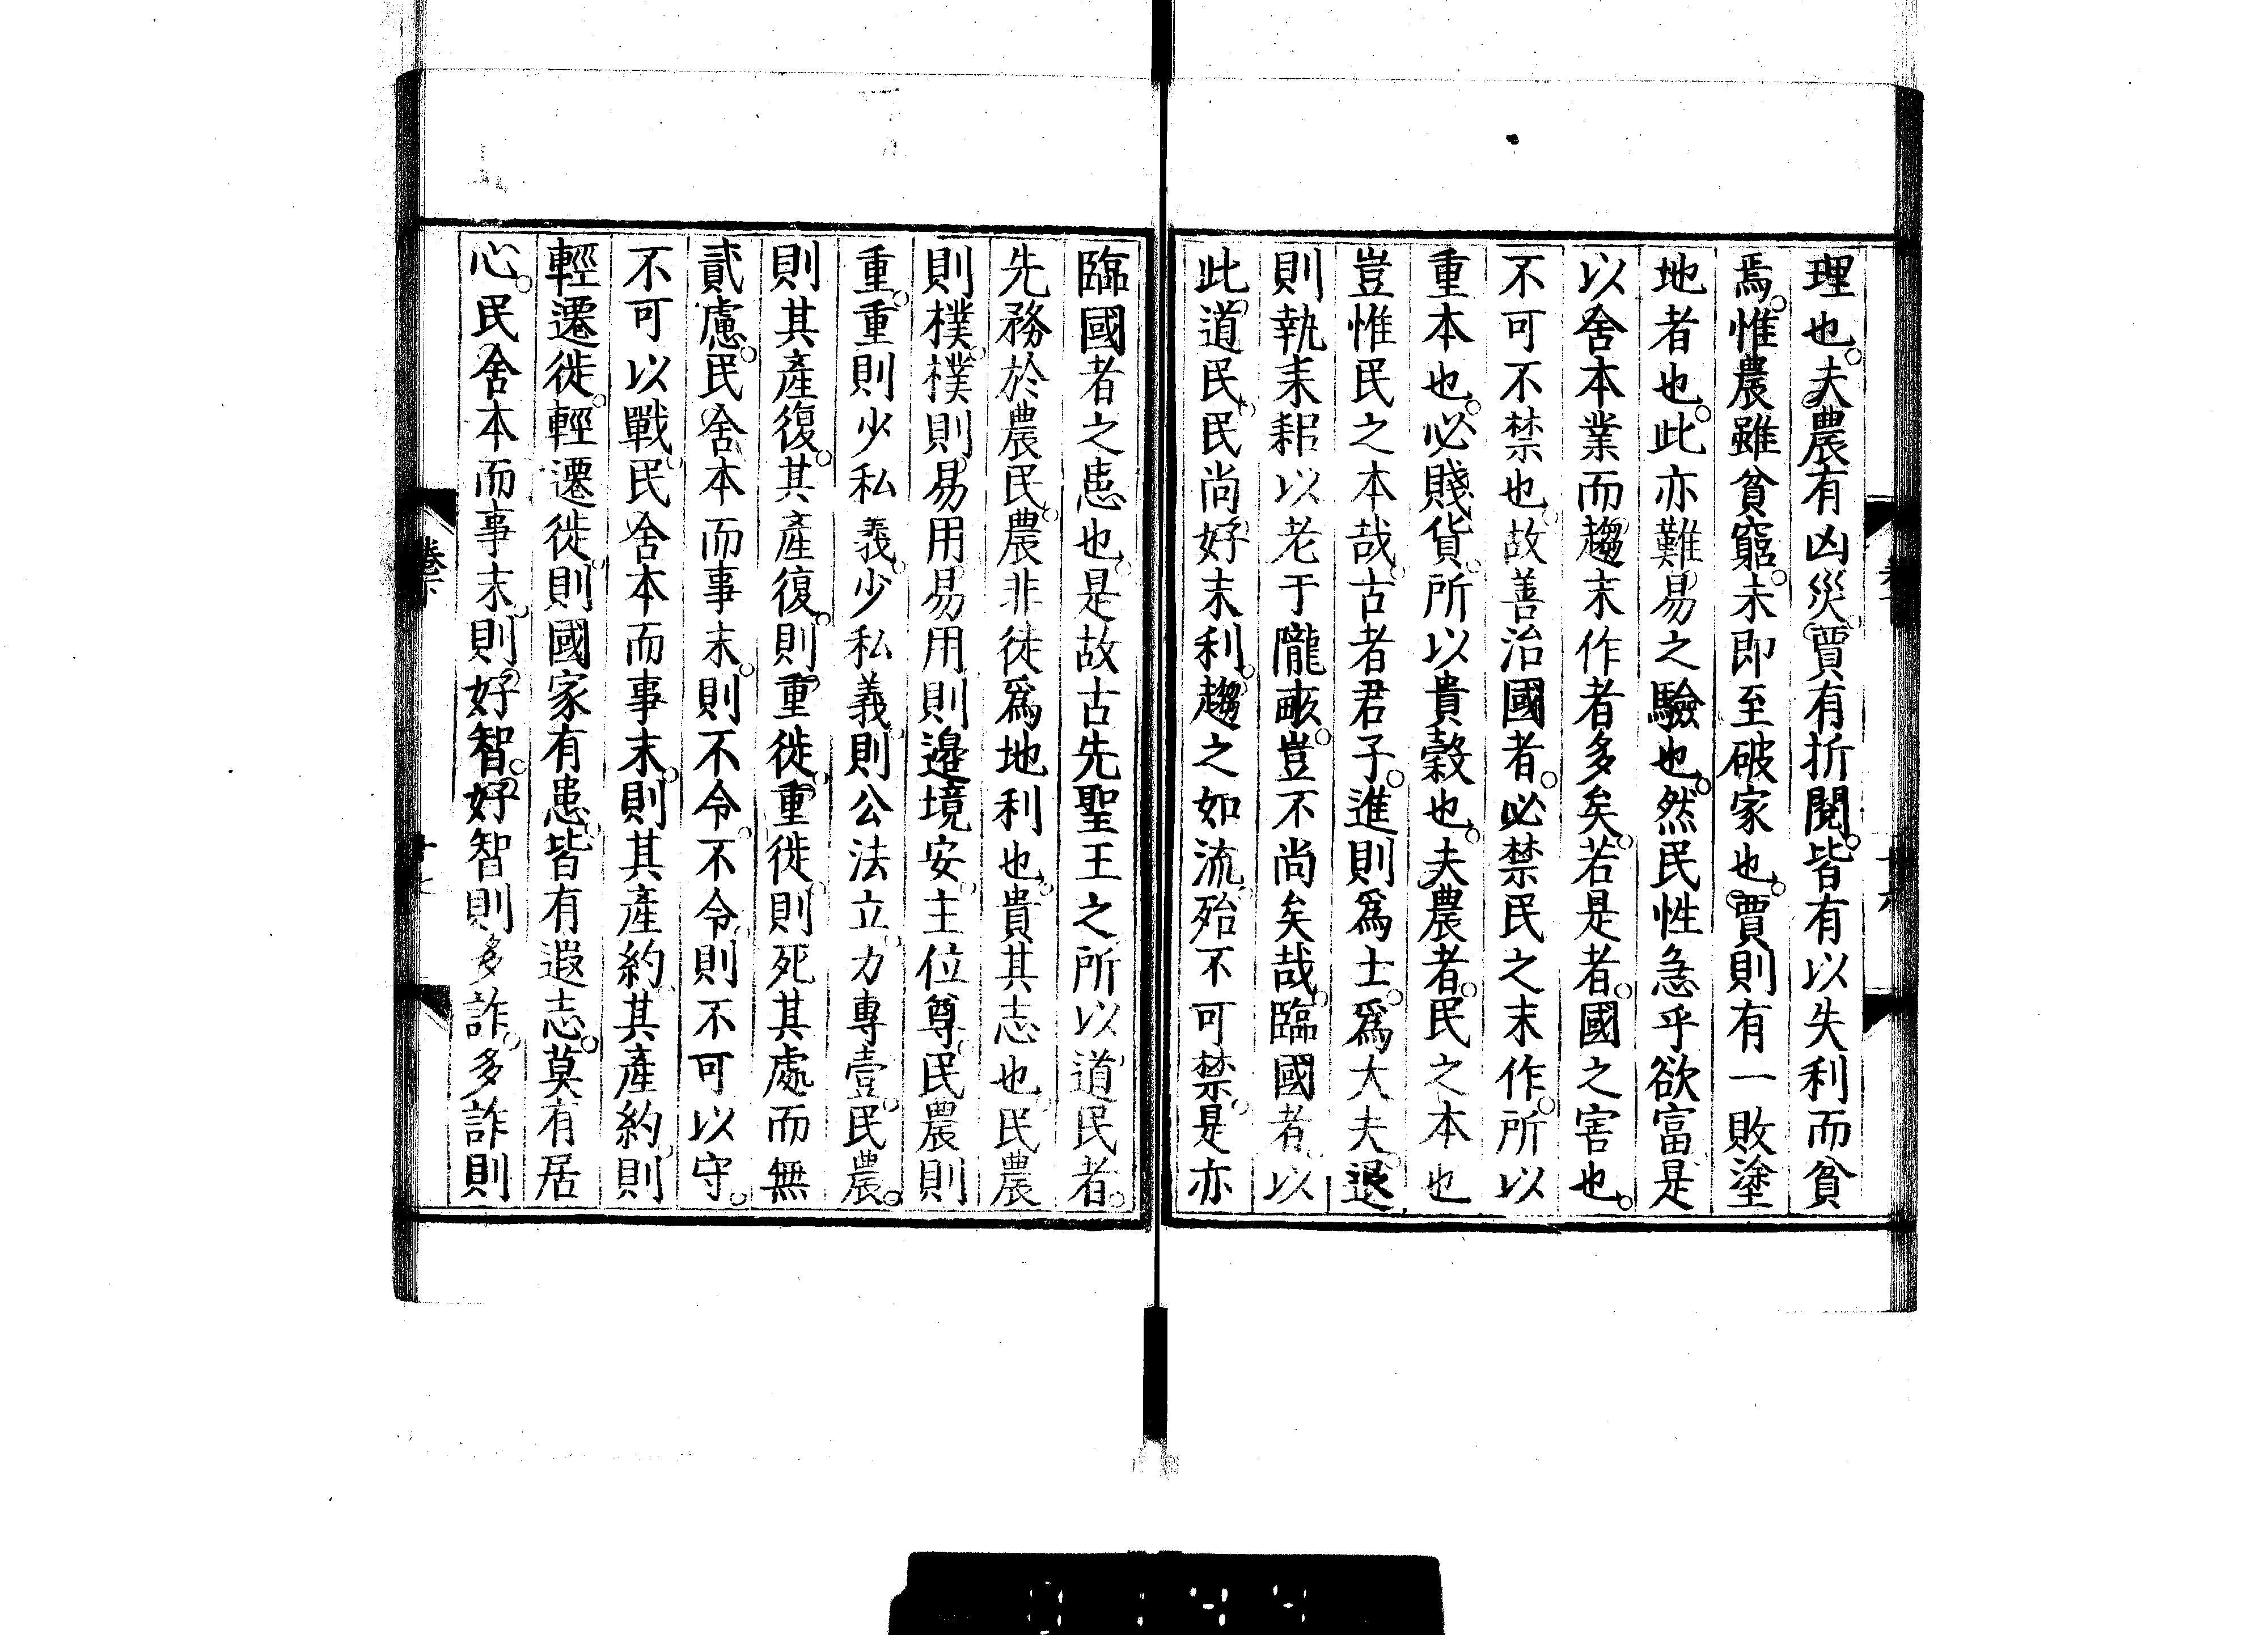 理也。夫農有凶災。賈有折閱。皆有以失利而貧
焉。惟農雖貧窮。未即至破家也。賈則有一敗塗
地者也。此亦難易之驗也。然民性急乎欲富。是
以舍本業而趨末作者多矣。若是者。國之害也。
不可不禁也。故善治國者。必禁民之末作。所以
重本也。必賤貨。所以貴穀也。夫農者。民之本也
豈惟民之本哉。古者君子。進則爲士。爲大夫。退
則執耒耜以老于隴畝。豈不尚矣哉。臨國者。以
此道民。民尚好末利。趨之如流。殆不可禁。是亦
臨國者之患也。是故古先聖王之所以道民者。
先務於農民。農非徒爲地利也。貴其志也。民農
則樸。樸則易用。易用則邊境安。主位尊。民農則
重。重則少私義。少私義。則公法立。力專壹。民農。
則其產復。其產復。則重徙。重徙。則死其處而無
貳慮。民舍本而事末。則不令。不令。則不可以守。
不可以戰。民舍本而事末。則其產約。其產約。則
輕遷徙。輕遷徙。則國家有患。皆有遐志。莫有居
心。民舍本而事末。則好智。好智則多詐。多詐則